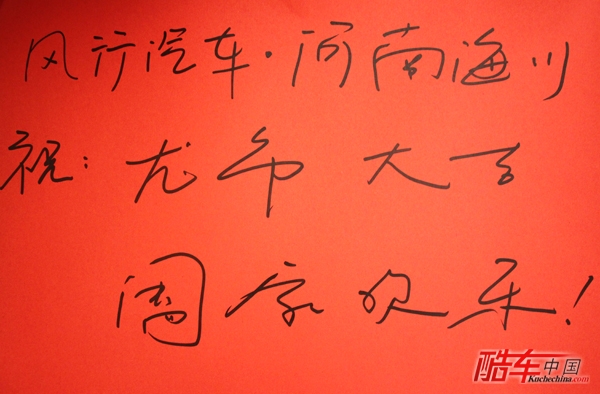 风行汽车·河南海川
祝：龙年大吉
阖家欢乐！
酷车中国
Kuchechina.com